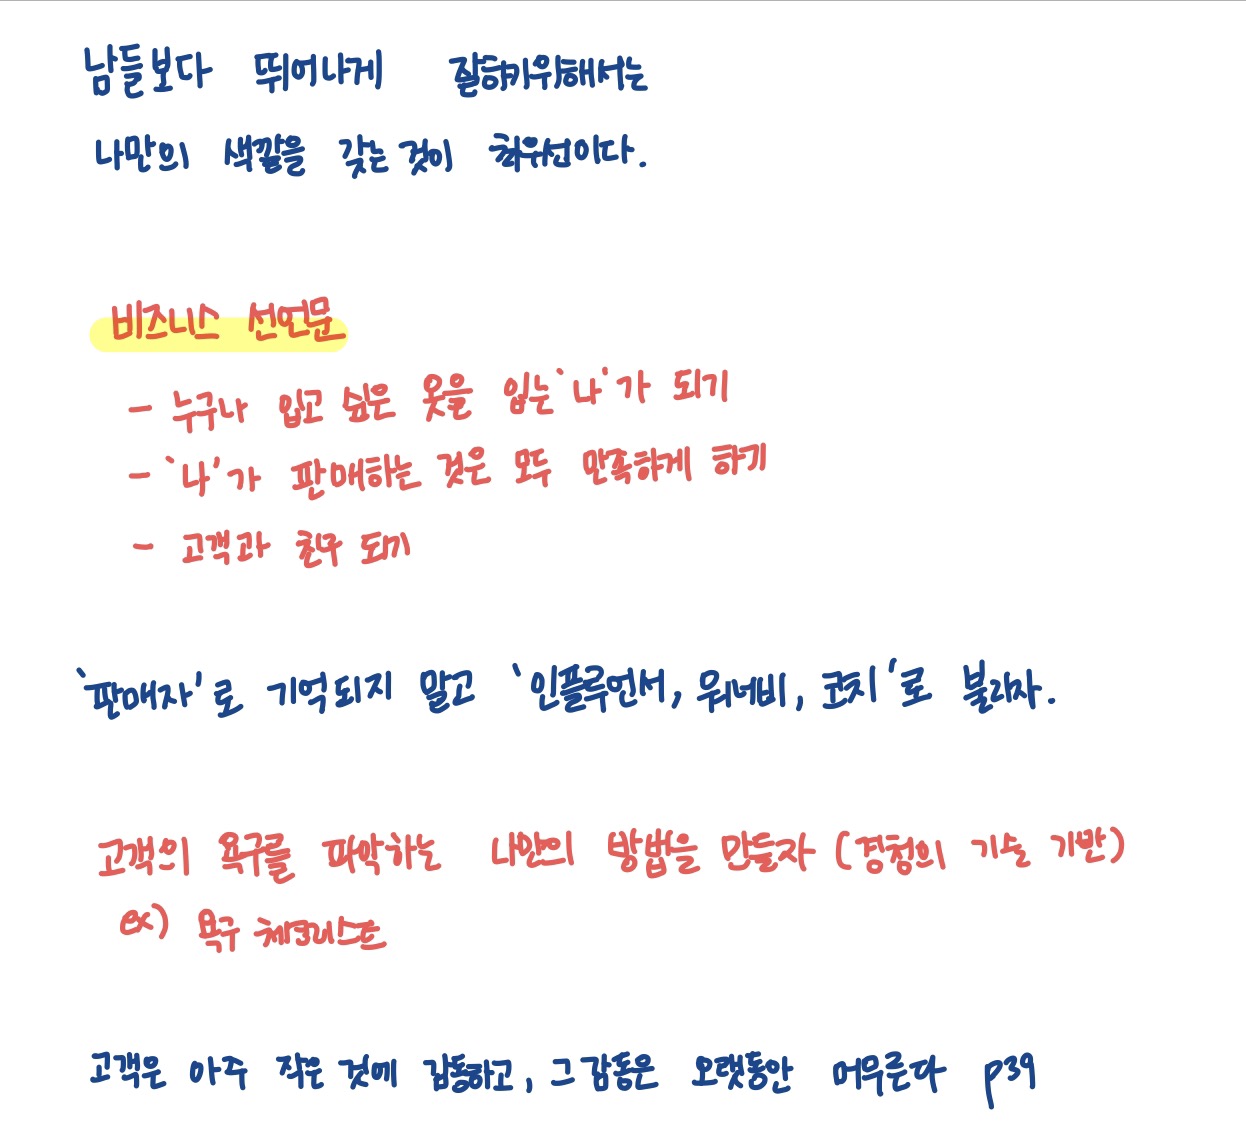 남들보다 뛰어나게 잘하기위해서는
나만의 색깔을 갖는 것이 최우선이다.
비즈니스 선언문
- 누구나 입고 싶은 옷을 입는 '나'가 되기
- '나'가 판매하는 것은 모두 만족하게 하기
- 고객과 친구 되기
'판매자'로 기억되지 말고 '인플루언서, 워너비, 코치'로 불리자.
고객의 욕구를 파악하는 나만의 방법을 만들자 (경청의 기술 기반)
ex) 욕구 체크리스트
고객은 아주 작은 것에 감동하고, 그 감동은 오랫동안 머무른다 p39